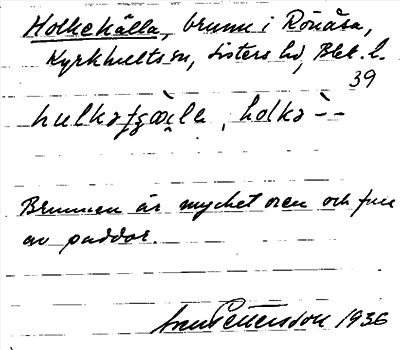 Holkekälla, brunn i Rönåsa,
Kyrkhults sn, Listers hd, Blek. l.
39
hulkaʃgæ̀ila, holkà--
Brunnen är mycket oren och full
av paddor.
Sven Pettersson 1936